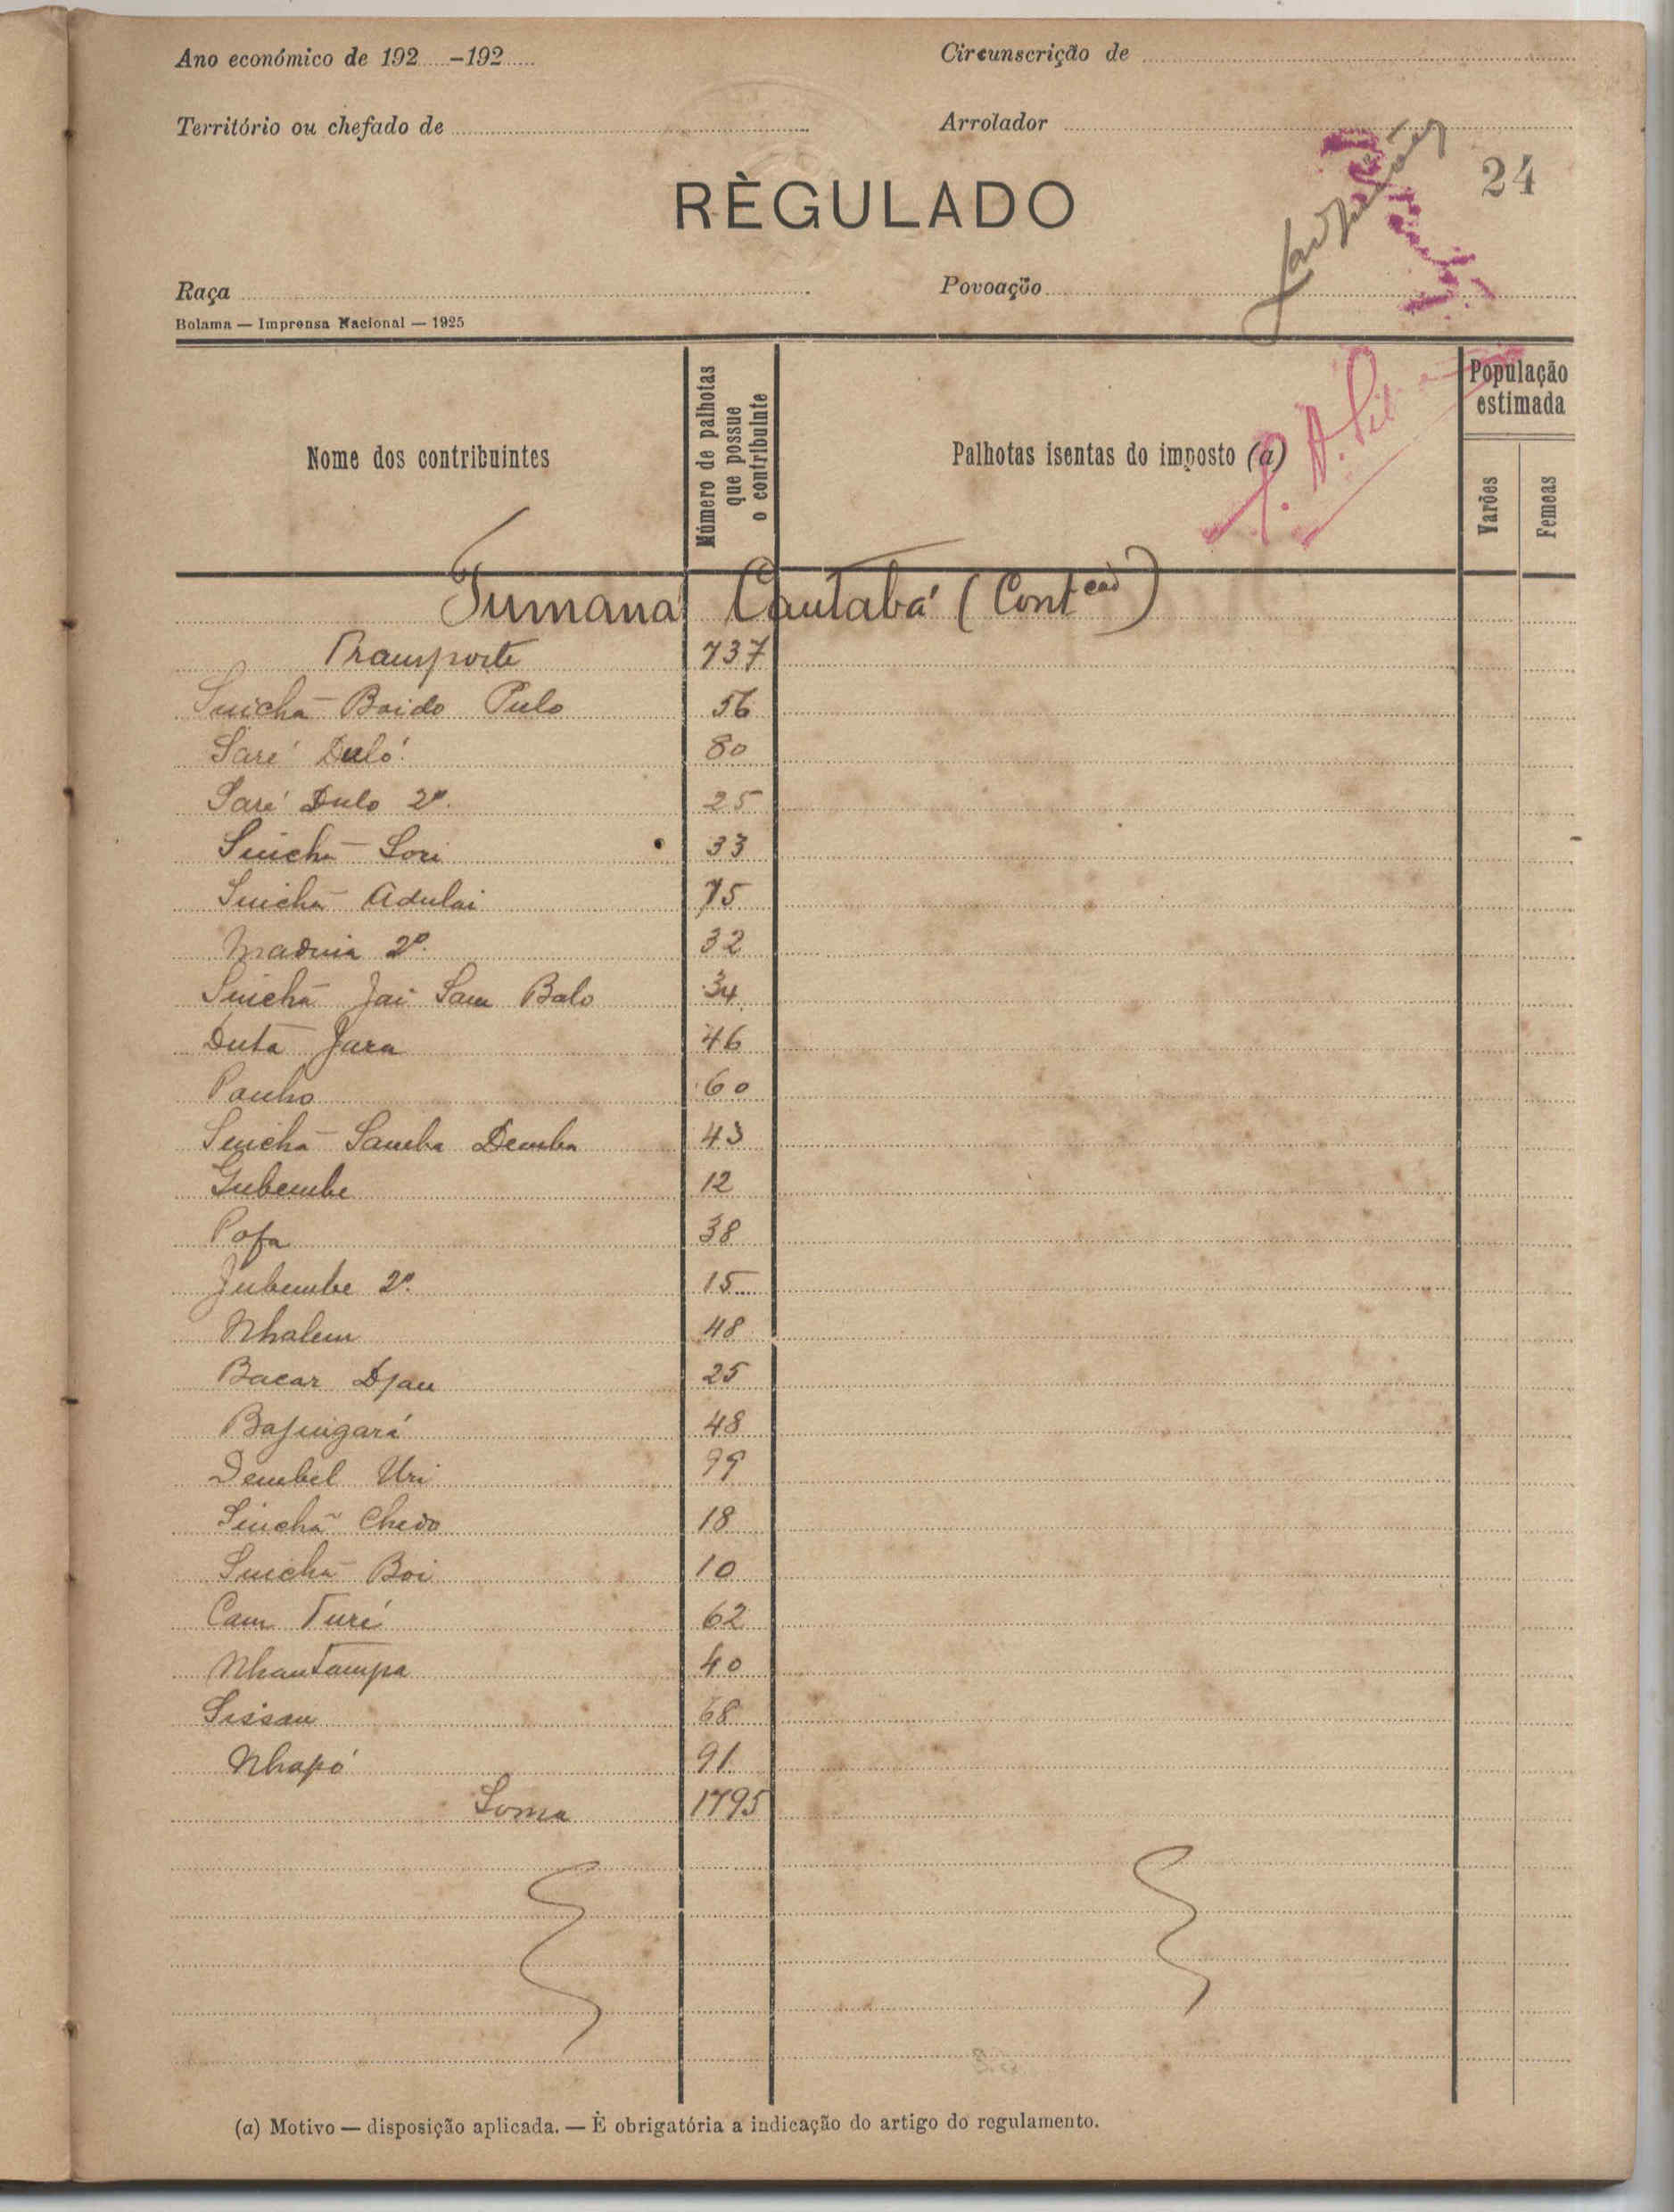 Ano económico de 192 -192
Circunscrição de
Território ou chefado de
Arrolador
24
RÈGULADO
Raça
Povoação
Bolama — Imprensa Nacional — 1925
Nome dos contribuintes
Número de palhotas que possue o contribuinte
Palhotas isentas do imposto (a)
População estimada
Varões
Femeas
Tumaná Cantabá (Contcão)
Transporte 737
Sinchã Boido Pulo 56
Saré Duló 80
Saré Dulo 2º. 25
Sinchã Sori 33
Sinchã Adulai 75
Madina 2º. 32
Sinchã Jai Sam Balo 34
Duta Jara 46
60
Sinchã Samba Demba 43
Gubembe 12
Pofa 38
Jubembe 2º. 15
Nhalem 48
Bacar Djau 25
Bajingará 48
Dembel Uri 99
Sinchã Chedo 18
Sinchã Boi 10
Cam Turé 62
Nhantampa 40
Sissau 68
Nhapó 91
Soma 1795
(a) Motivo — disposição aplicada. — È obrigatória a indicação do artigo do regulamento.